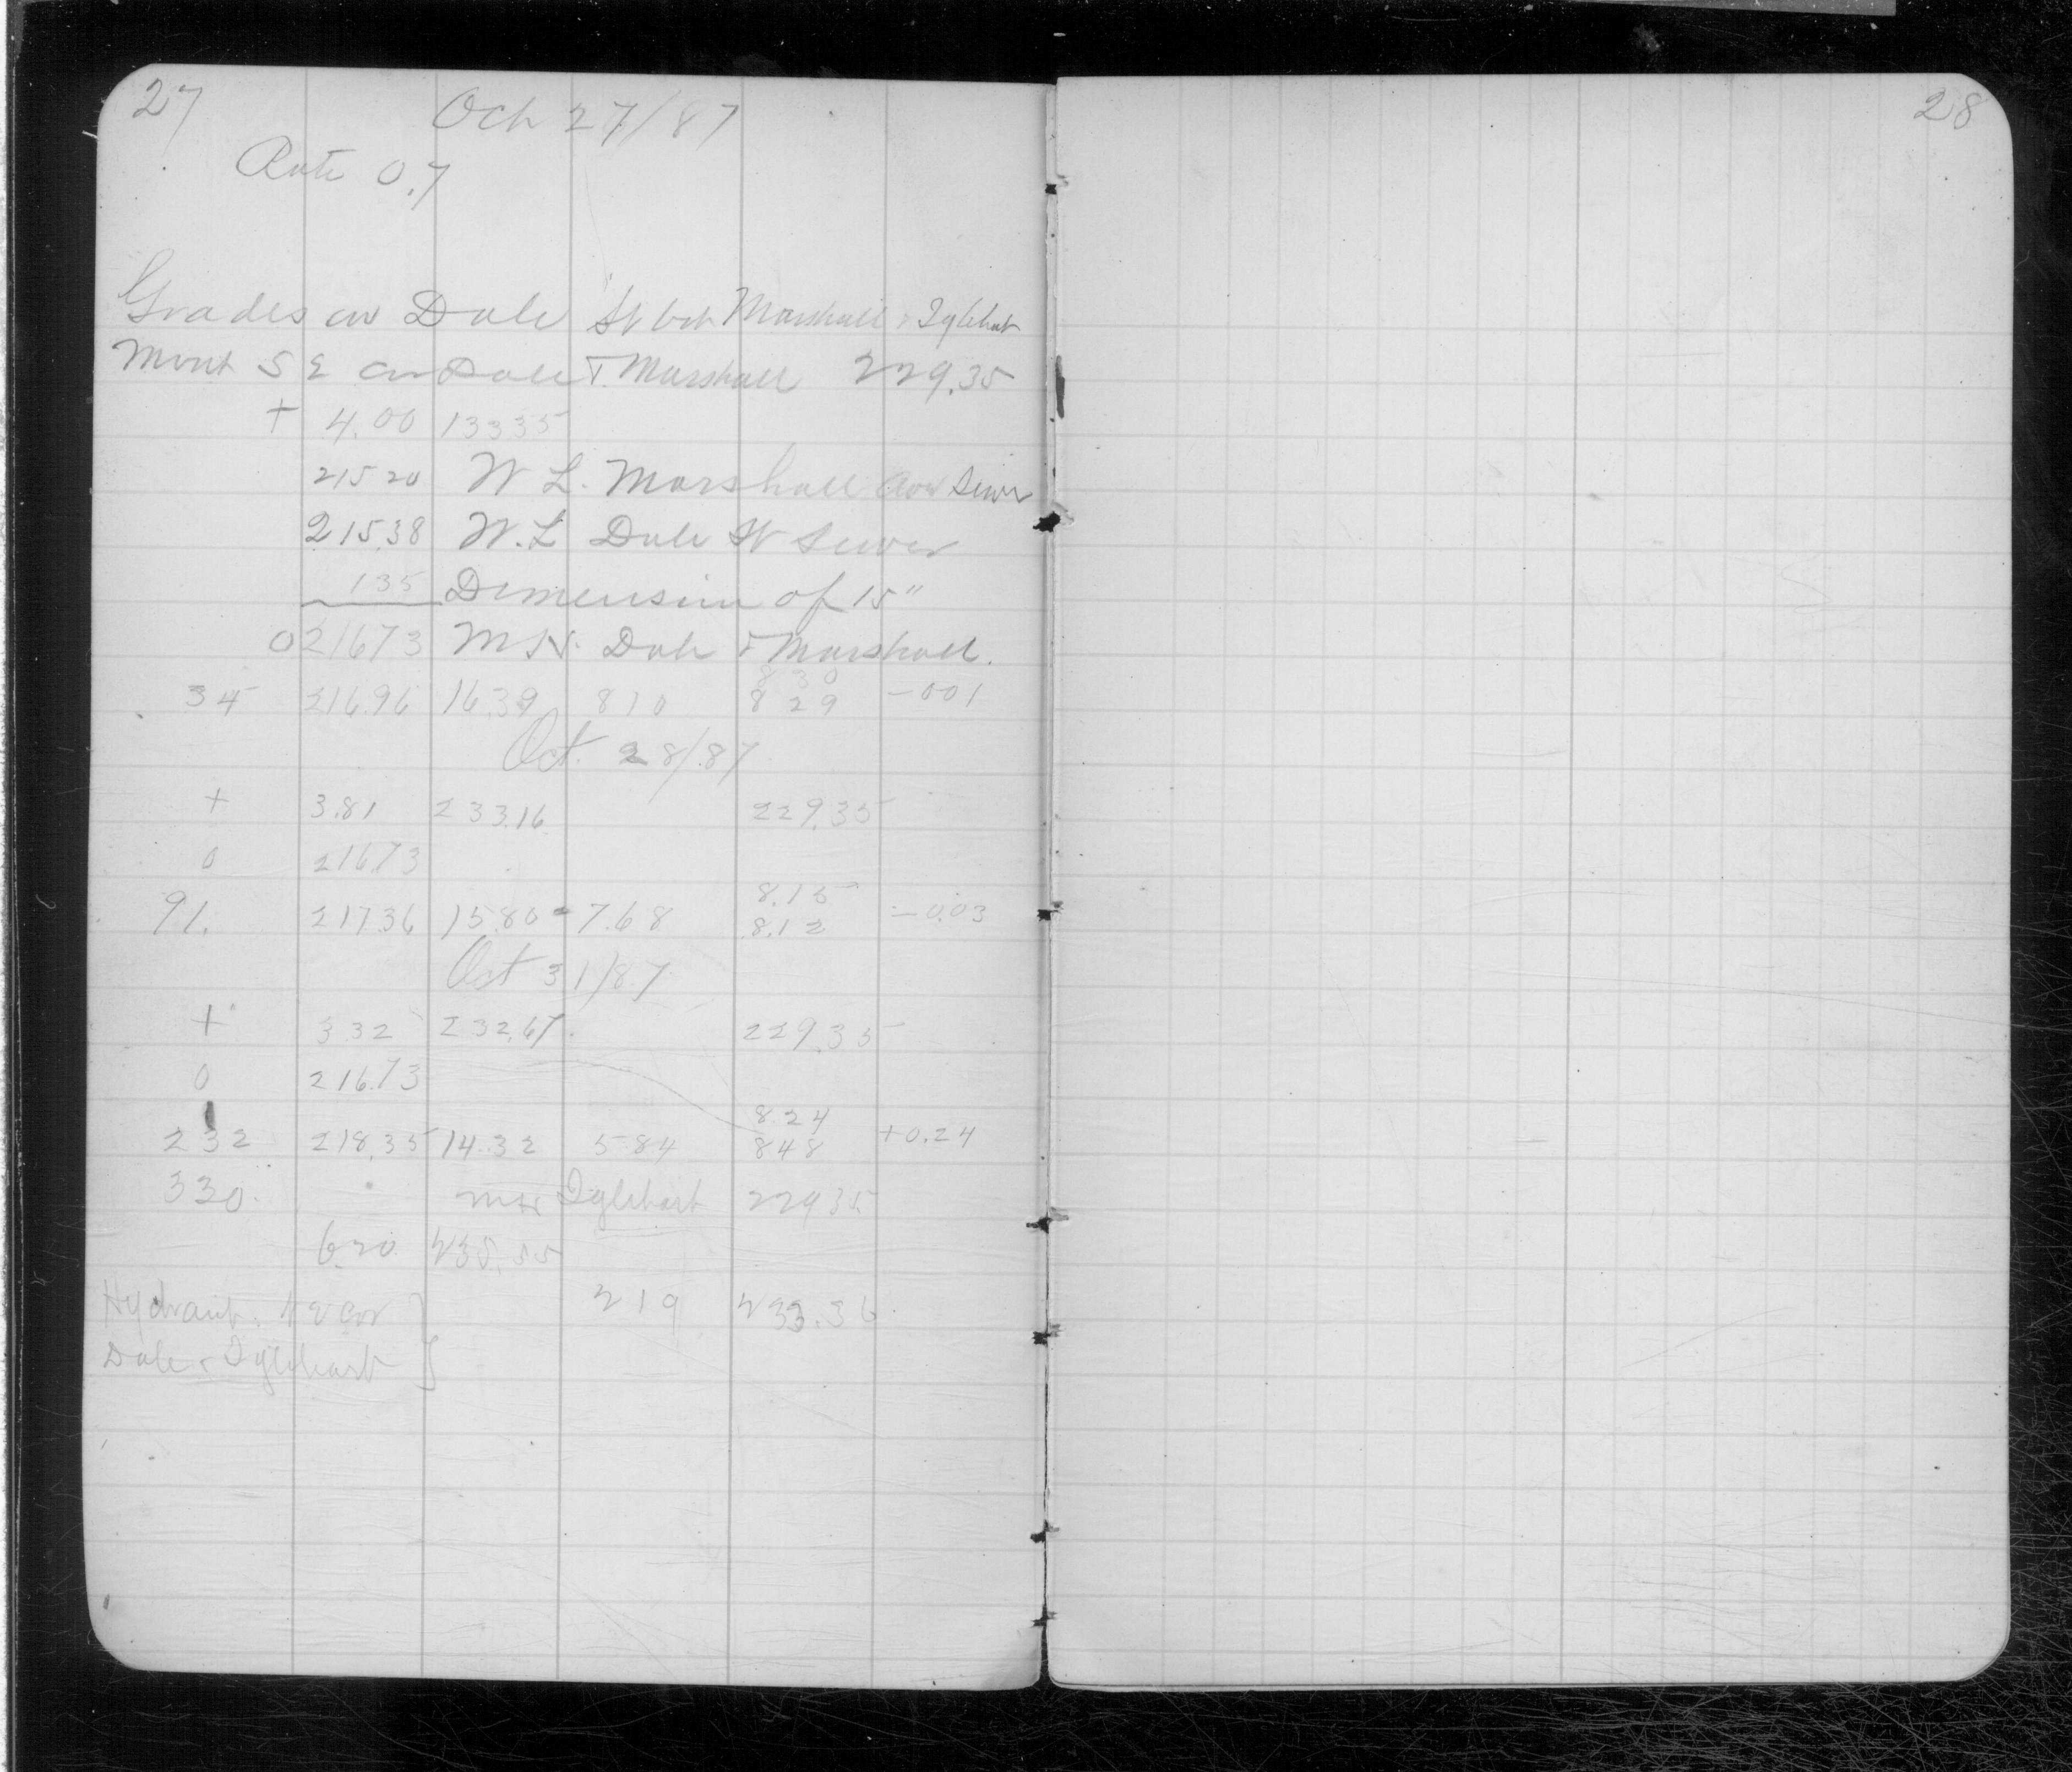 27
Oct 27/87
Rate 0.7
Grades on Dale St bet Marshall & Iglehart
Mont S E cor Dale & Marshall 229.35
+ 4.00 13335
215 20 W L. Marshall Ave Sewer
215.38 W.L Dale St Sewer
135 Dimension of 15"
0 21673 M H. Dale & Marshall.
830
34 216.96 16.39 810 829 -001
Oct. 28/87
+ 3.81 233.16 229.35
0 216.73
8.15
91. 217.36 15.80 - 7.68 8.12 -0.03
Oct 31/87
+ 3.32 232.67. 229.35
0 216.73
8.24
232 218.35 14.32 5.84 848 +0.24
330. MH Iglehart 229 35
6.20 235.55
Hydrant. N E Cor } 219 233.36
Dale & Iglehart }
28